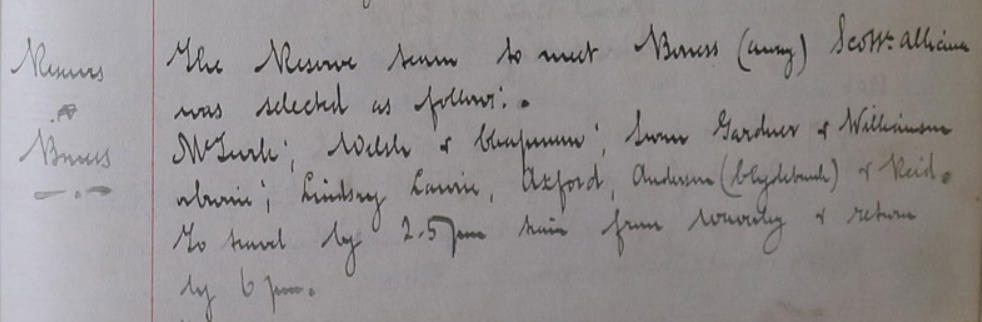 Reserves
v
Boness
The Reserve team to meet Boness (away) Scott: alliance
was selected as follows:.
McTurk; Welsh & Chapman;  Gardner & Williamson
; Lindsay Lawrie, Axford, Anderson (Clydebank) & Reid.
To travel by 2.5 pm train from waverley & return
by 6 pm.